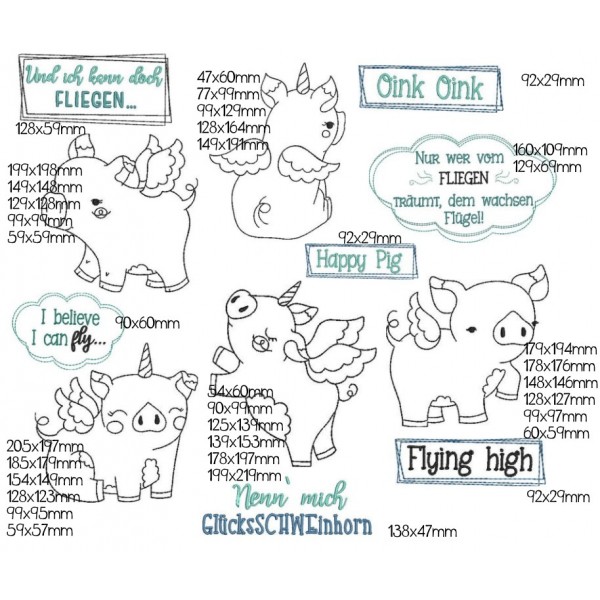 Und ich kann doch
FLIEGEN...
128x59mm
47x60mm
77x99mm
99x129mm
128x164mm
149x191mm
Oink Oink
92x29mm
199x198mm
149x148mm
129x128mm
99x99mm
59x59mm
Nur wer vom
FLIEGEN
träumt, dem wachsen
Flügel!
160x109mm
129x69mm
92x29mm
Happy Pig
I believe
I can fly...
90x60mm
179x194mm
178x176mm
148x146mm
128x127mm
99x97mm
60x59mm
54x60mm
90x99mm
125x139mm
139x153mm
178x197mm
199x219mm
205x197mm
185x179mm
154x149mm
128x123mm
99x95mm
59x57mm
Flying high
92x29mm
Nenn' mich
GlücksSCHWEinhorn
138x47mm